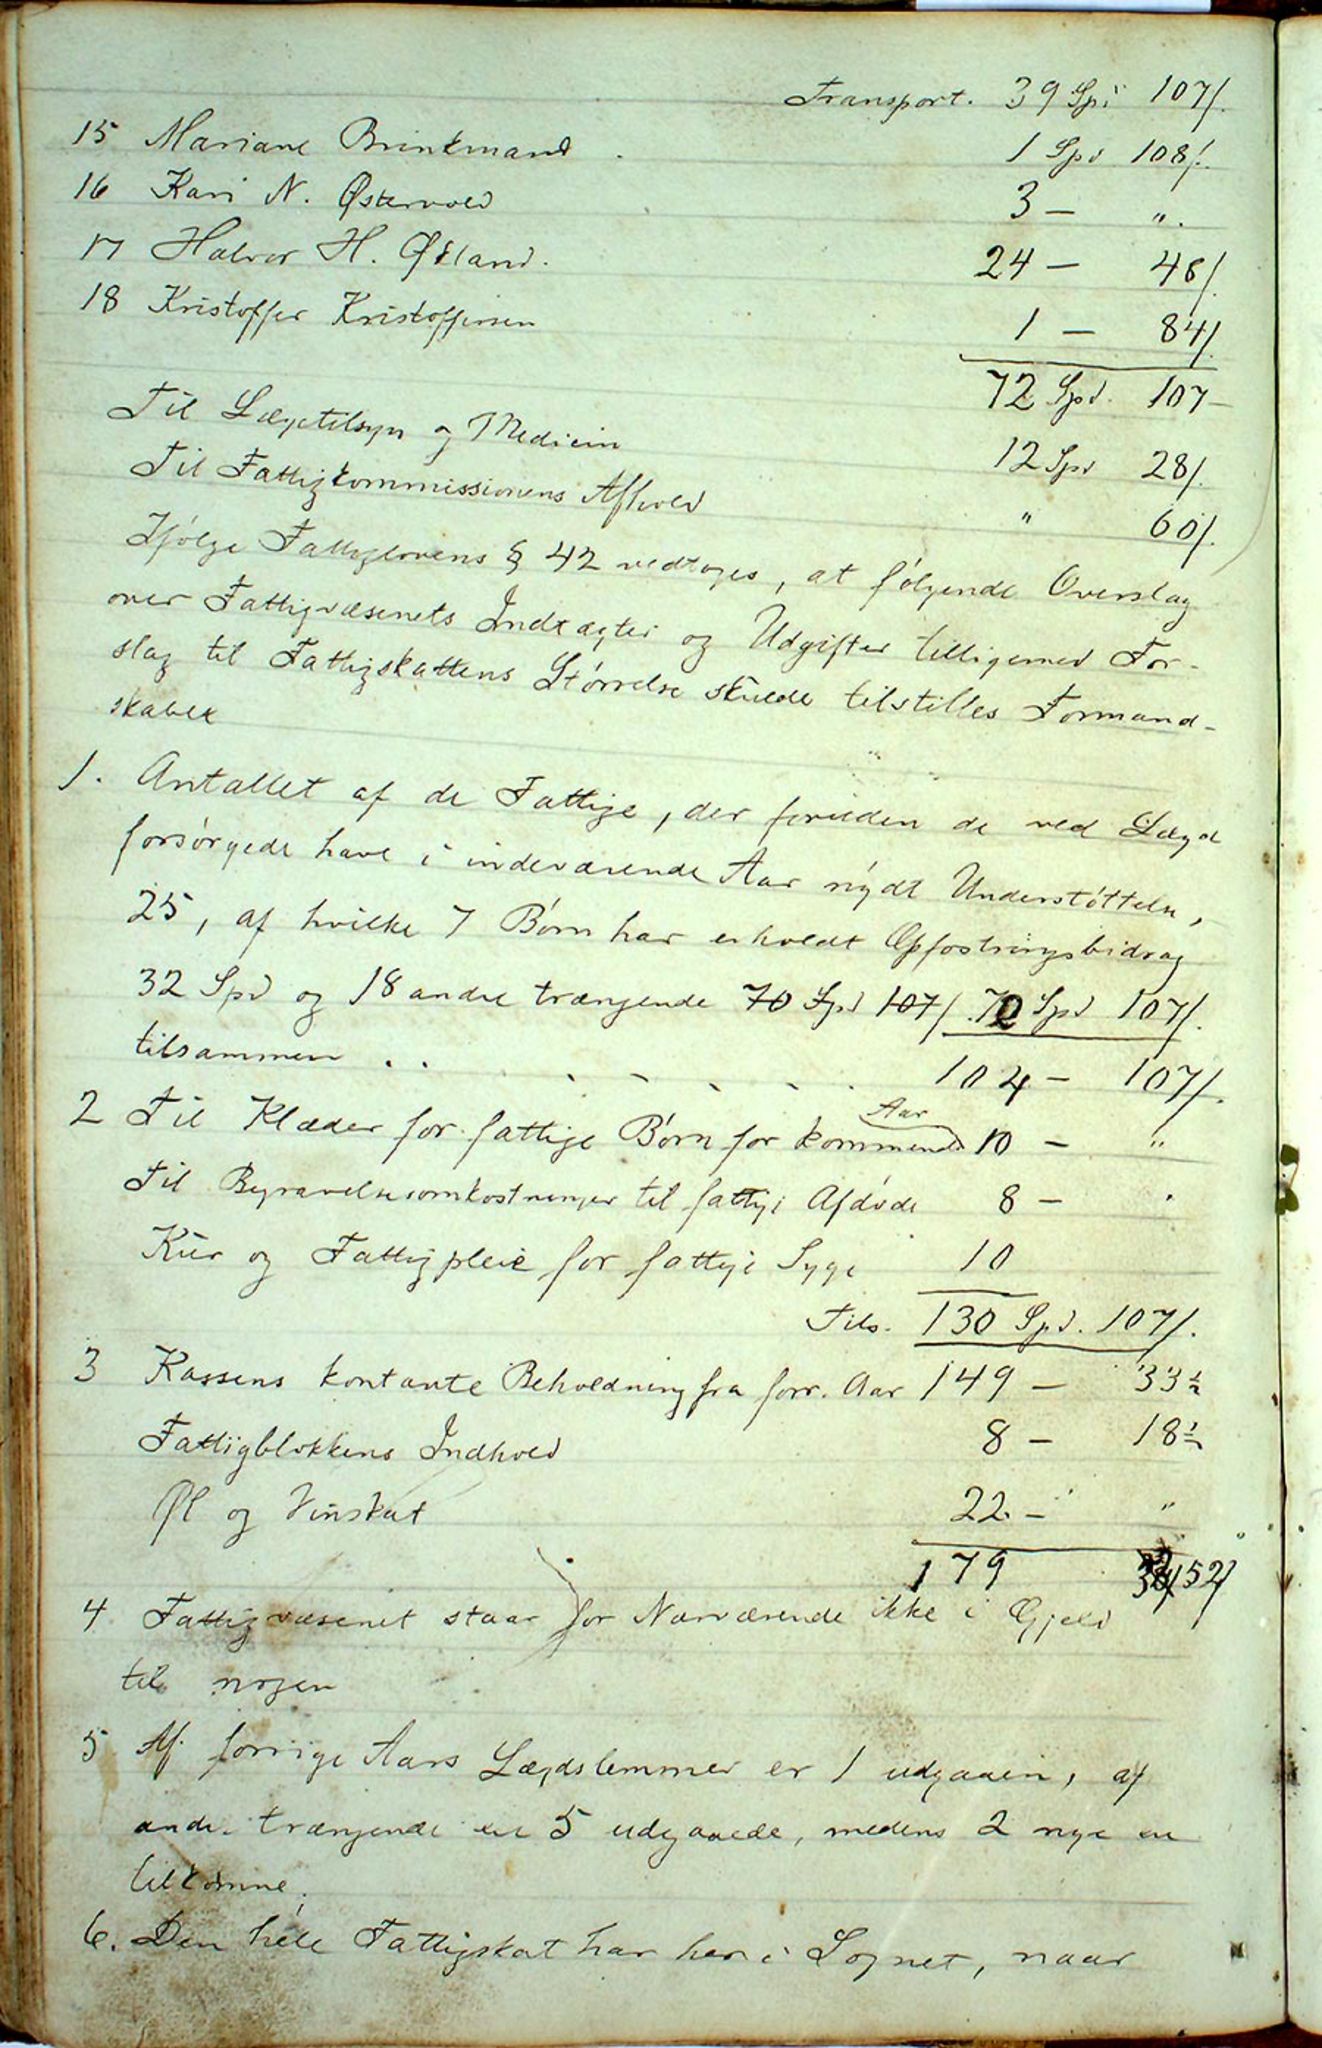 Transport. 39 Spd 107/.
15 Mariane Brinkmand . 1 Spd 108/.
16 Kari N. Østervold 3 — ".
17 Halvor H. Økland. 24 — 48/.
18 Kristoffer Kristoffersen 1 — 84/.
72 Spd. 107 –
Til Lægetilsyn og Medicin 12 Spd 28/.
Til Fattigkommissionens Afhold " 60/.
Ifølge Fattiglovens § 42 vedtoges, at følgende Overslag
over Fattigvæsenets Indtægter og Udgifter tilligemed For-
slag til Fattigskattens Størrelse skulde tilstilles Formand-
skabet
1. Antallet af de Fattige, der foruden de ved Lægd
forsørgede have i indeværende Aar nydt Understøttelse,
25, af hvilke 7 Børn har erholdt Opfostringsbidrag
32 Spd og 18 andre trængende 70 Spd 107/. 72 Spd 107/.
tilsammen . . . . . . . 104 – 107/.
2 Til Klæder for fattige Børn for kommende Aar 10 – "
Til Begravelsesomkostninger til fattige Afdøde 8 – "
Kur og Fattigpleie for fattige Syge 10
Tils. 130 Spd. 107/.
3 Kassens kontante Beholdning fra forr. Aar 149 – 33½
Fattigblokkens Indhold 8 – 18½
Øl og Vinskat 22. – "
179 52/
4 Fattigvæsenet staar for Nærværende ikke i Gjeld
til nogen
5 Af forrige Aars Lægdslemmer er 1 udgaaen, af
andre trængende ere 5 udgaaede, medens 2 nye ere
tilkomne.
6. Den hele Fattigskat har her i Sognet, naar